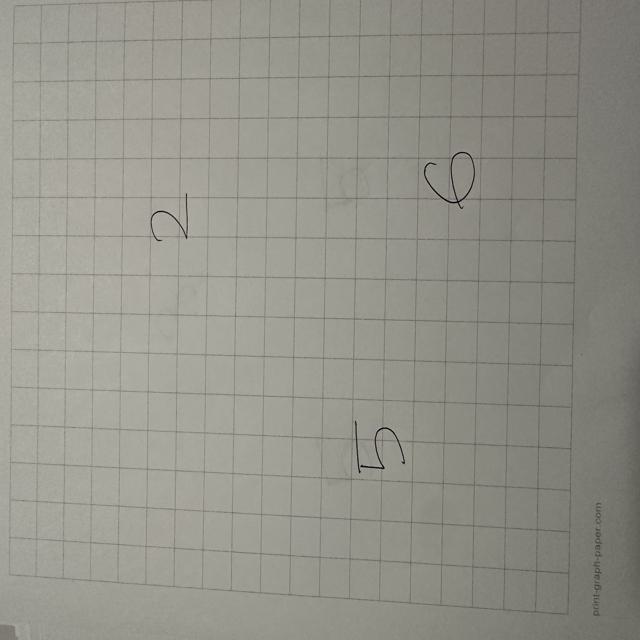 2
5
6
print-graph-paper.com